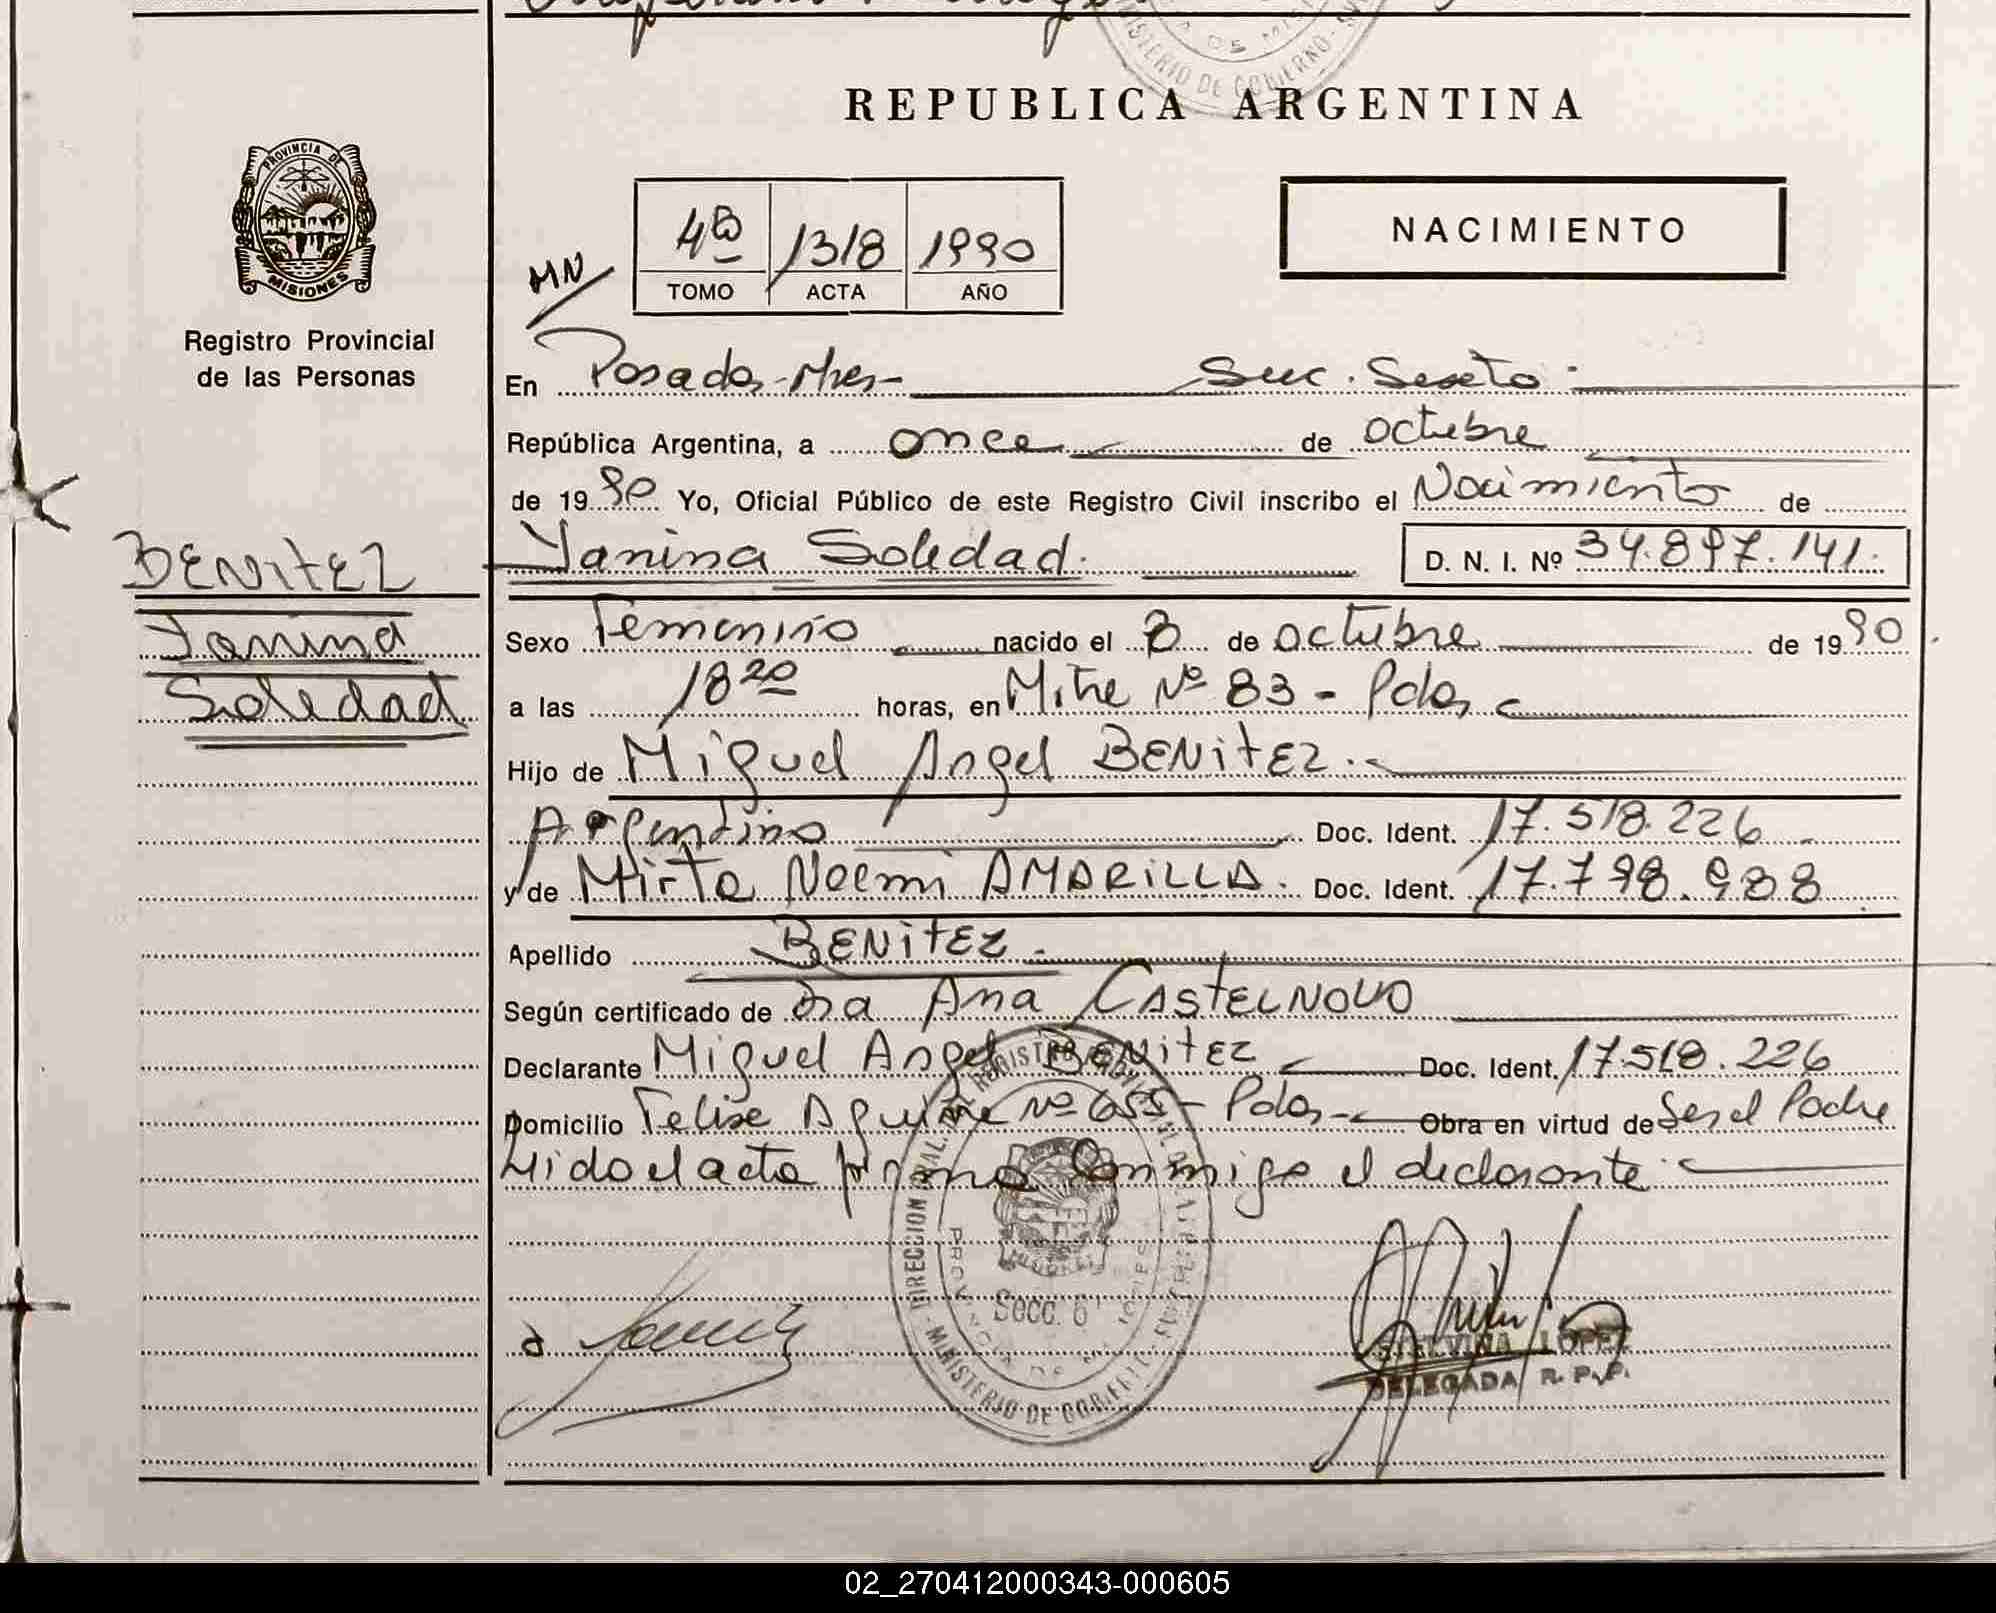 REPUBLICA ARGENTINA
PROVINCIA DE
MISIONES
Registro Provincial
de las Personas
MN
4º 1318 1990
TOMO ACTA AÑO
NACIMIENTO
En Posadas-Mnes- Secc. Sexta
República Argentina, a once de octubre
de 1990 Yo, Oficial Público de este Registro Civil inscribo el Nacimiento de
Yanina Soledad. D. N. I. Nº 34.897.141.
BENITEZ
Yanina
Soledad
Sexo Femenino nacido el 8 de octubre de 1990
a las 18 20 horas, en Mitre Nº 83 - Pdas
Hijo de Miguel Angel BENITEZ.
Argentino Doc. Ident. 17.518.226
y de Mirta Noemi AMARILLA. Doc. Ident. 17.798.988
Apellido BENITEZ.
Según certificado de Dra Ana CASTELNOVO
Declarante Miguel Angel BENITEZ Doc. Ident. 17.518.226
Domicilio Felix Aguirre Nº 655 - Pdas - Obra en virtud de Ser el Padre
Leido el acta firma Conmigo el declarante.
Secc. 6ª
MINISTERIO DE GOBIERNO
LOPEZ
DELEGADA R. P. P.
02_270412000343-000605